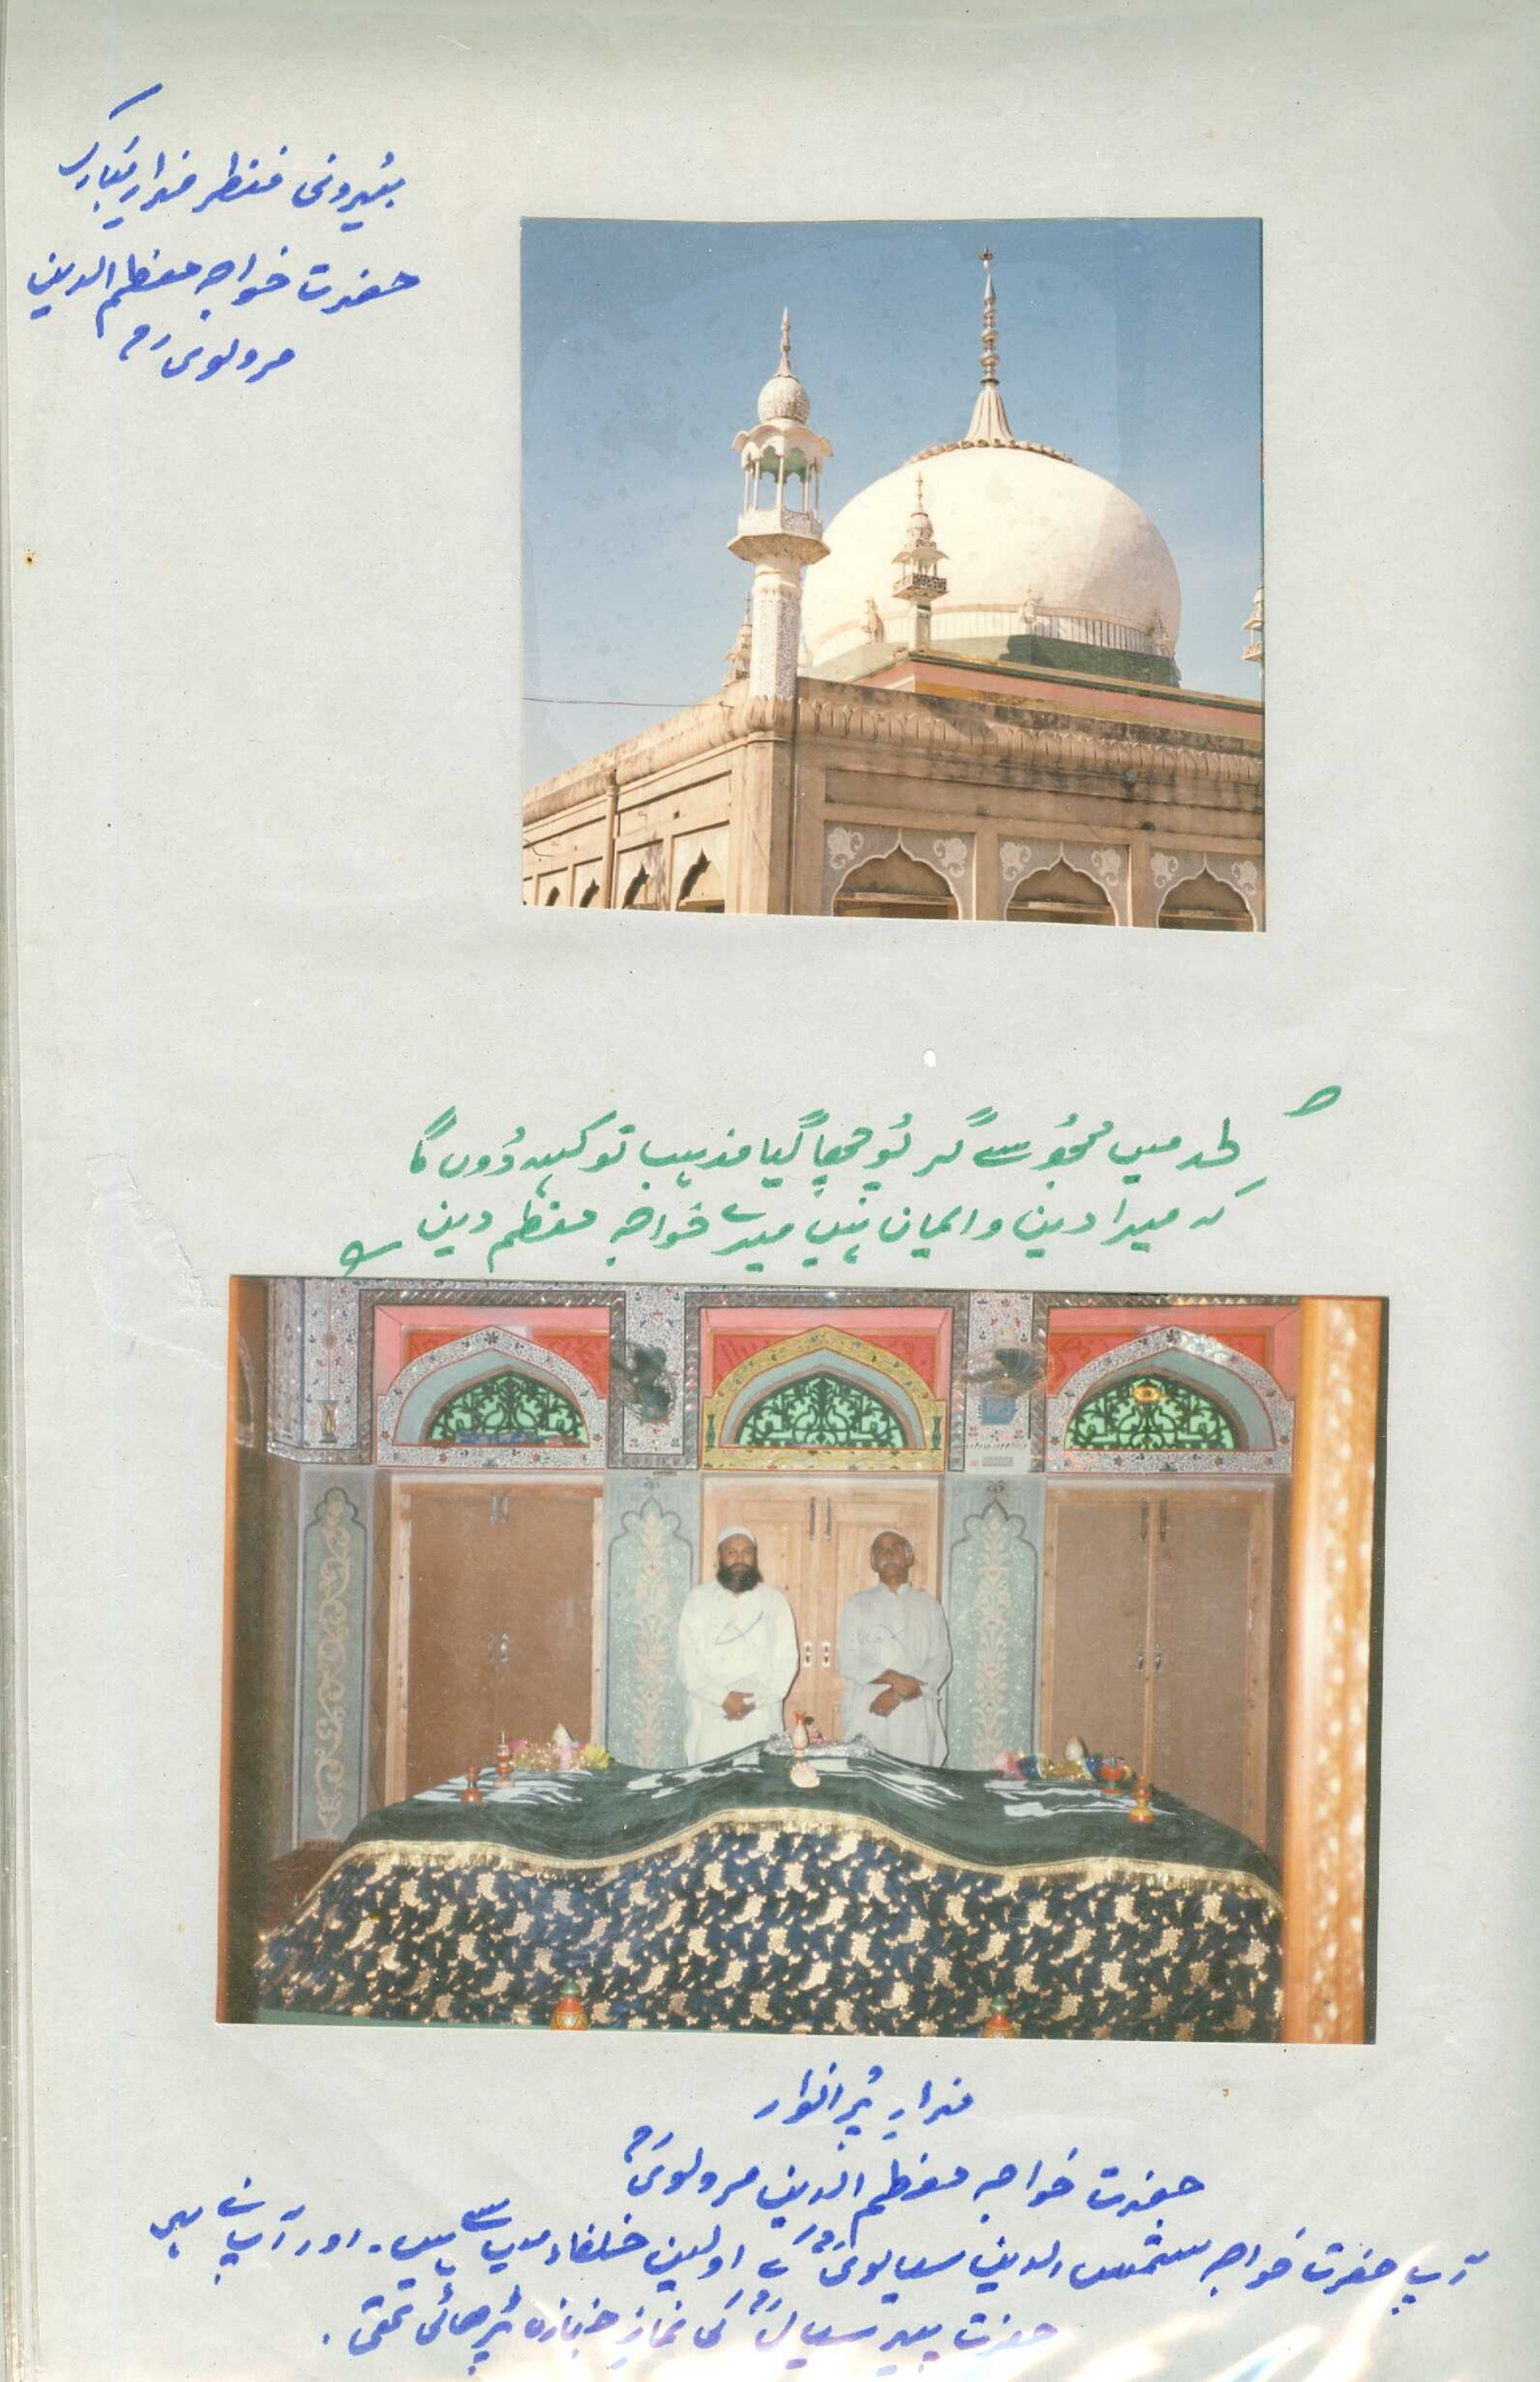 بیرونی منظر مزار مبارک
حضرت خواجہ معظم الدین
مرولوی رح
لحد میں مجھ سے گر پوچھا گیا مذہب تو کہہ دوں گا
کہ میرا دین و ایمان ہیں میرے خواجہ معظم دین
مزارِ پُر انوار
حضرت خواجہ معظم الدین مرولویؒ
آپ حضرت خواجہ شمس الدین سیالویؒ کے اولین خلفاء میں سے ہیں۔ اور آپ نے ہی
حضرت پیر سیالؒ کی نمازِ جنازہ پڑھائی تھی.